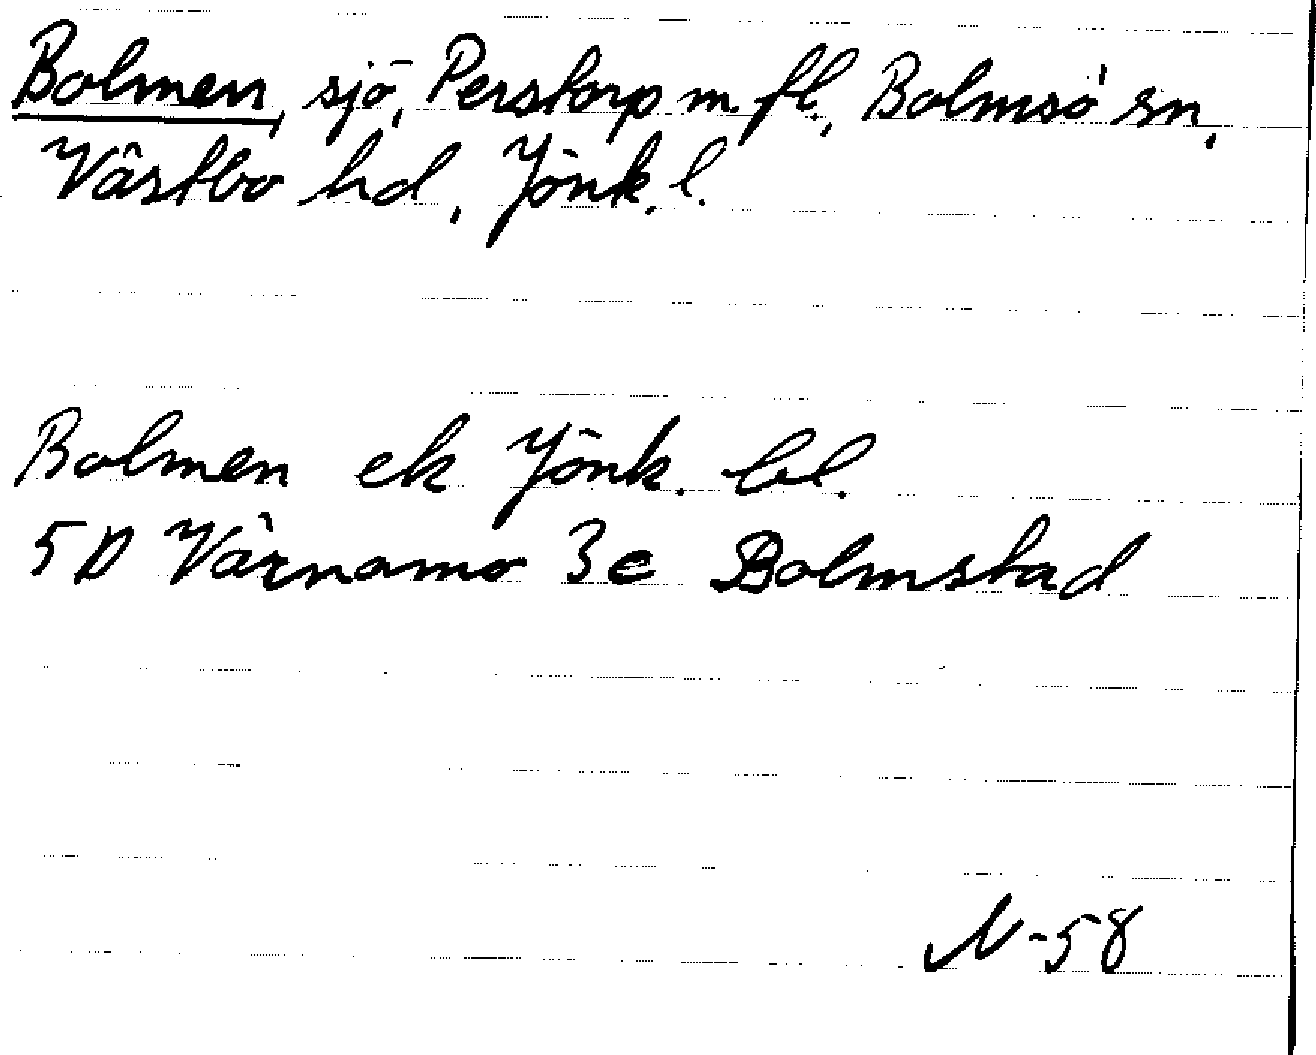 Bolmen, sjö, Perstorp m. fl., Bolmsö sn,
Västbo hd, Jönk. l.
Bolmen ek Jönk. bl.
5D Värnamo 3e Bolmstad
N-58